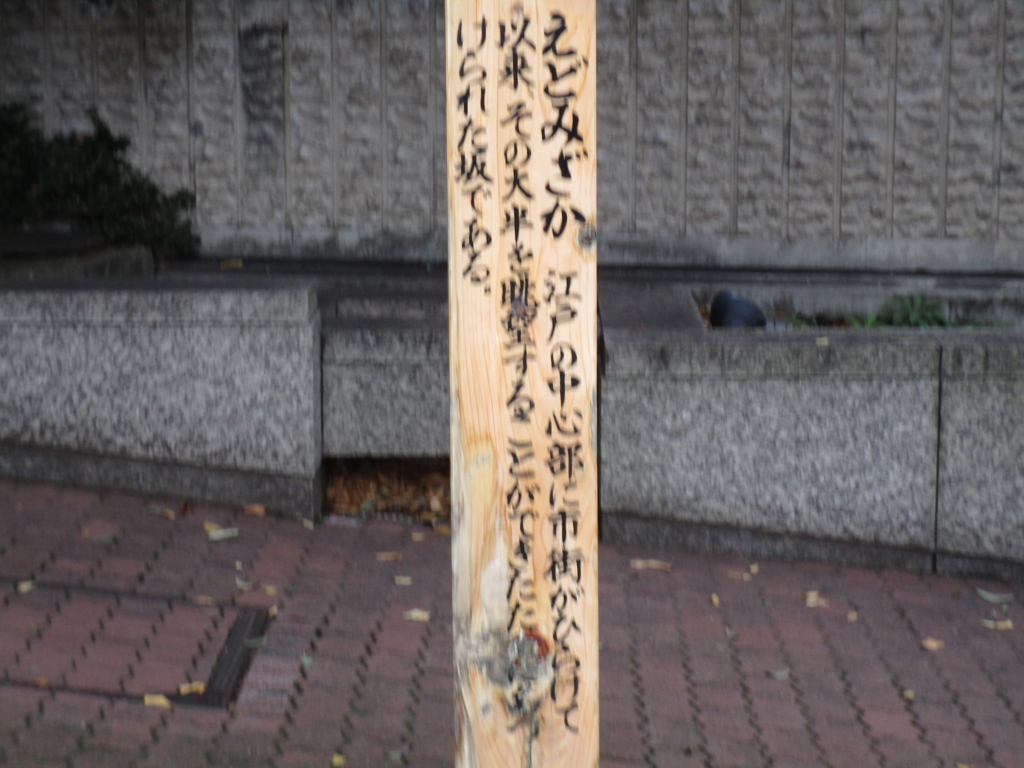 えどみざか 江戸の中心部に市街がひらけて
以来、その大半を眺望することができたた
けられた坂である。